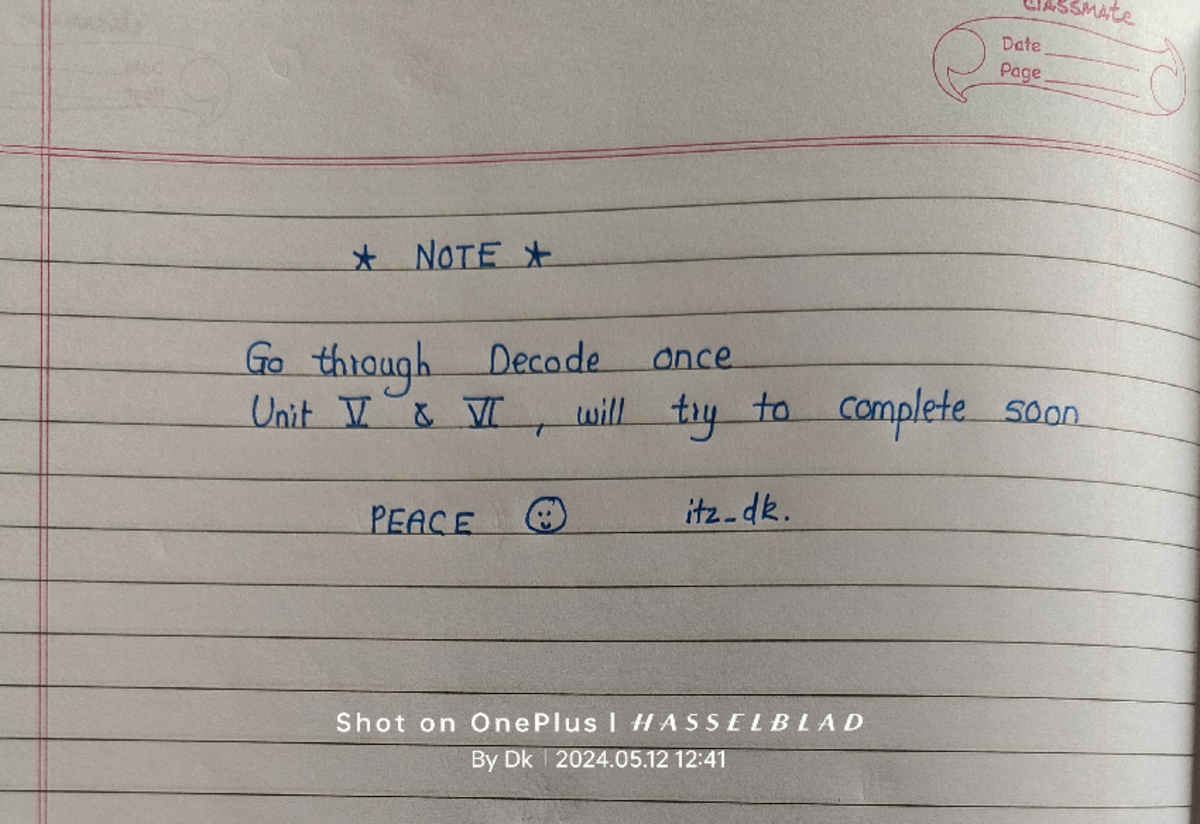 classmate
Date
Page
★ NOTE ★
Go through Decode once
Unit V & VI , will try to complete soon
PEACE ☺ itz_dk.
Shot on OnePlus | HASSELBLAD
By Dk | 2024.05.12 12:41